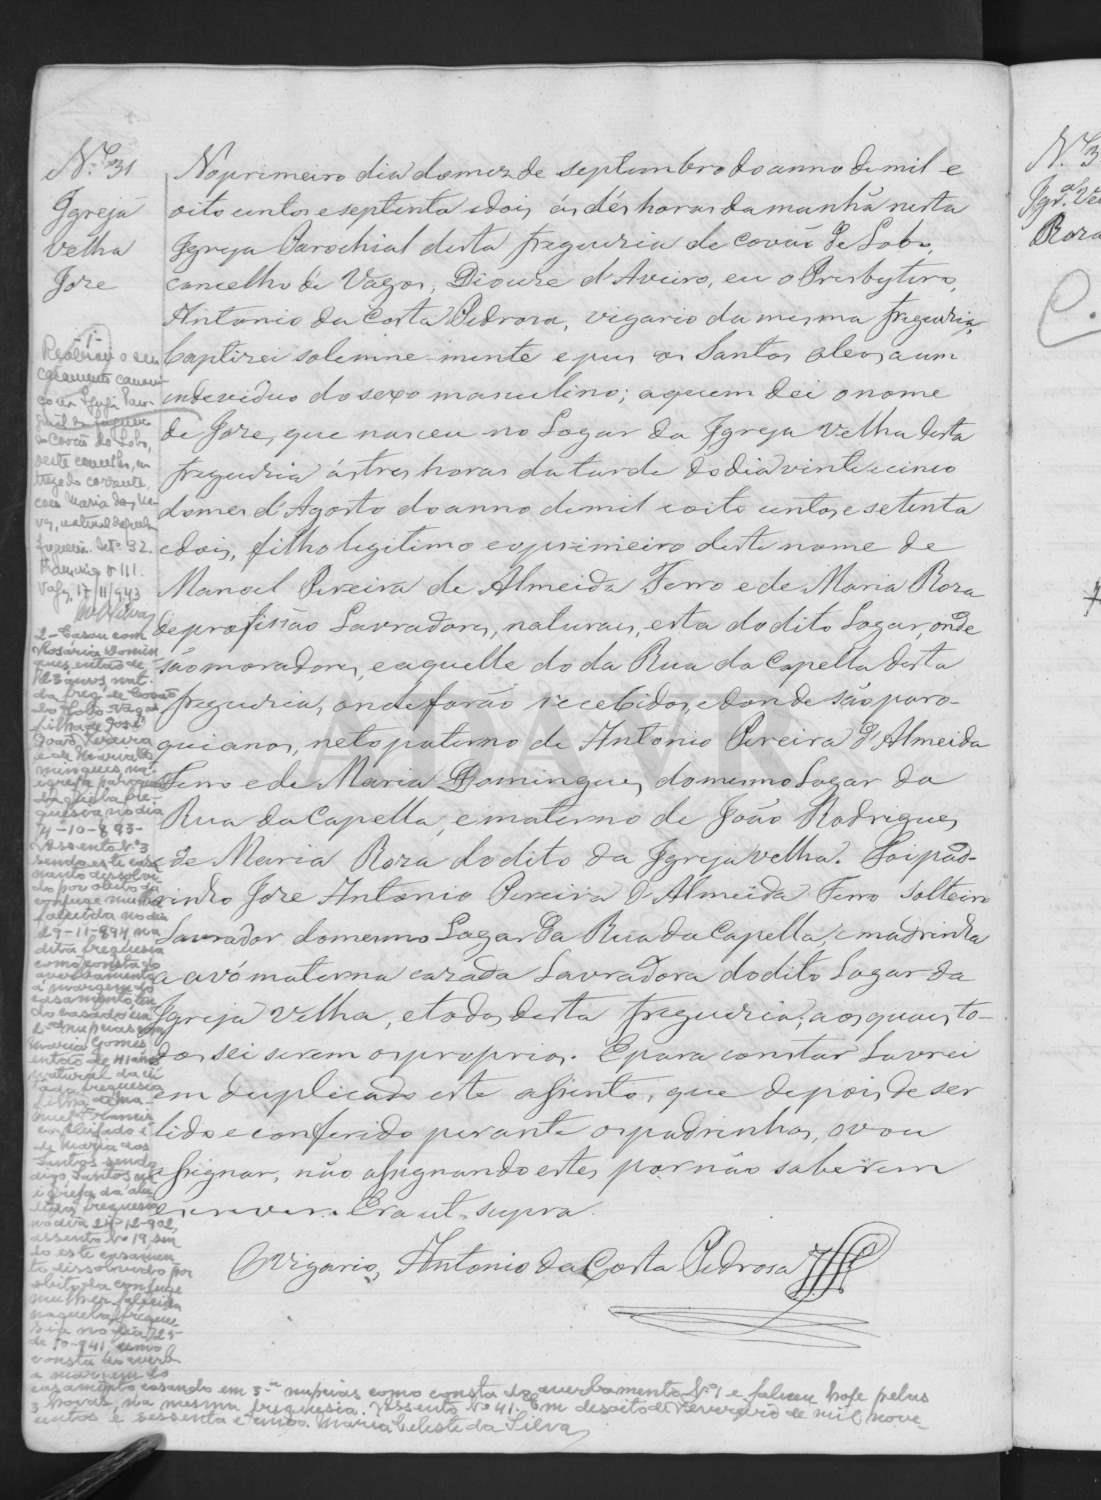 N.º 31
Igreja
Velha
Joze
No primeiro dia do mez de septembro do anno de mil e
oito centos e septenta e dois ás dés horas da manhã nesta
Igreja Parochial desta freguezia de Covão de Lobo,
concelho de Vagos, Diocese d'Aveiro, eu o Presbytero,
Antonio da Costa Pedrosa, vigario da mesma freguezia,
baptizei solemne-mente e pus os Santos oleos a um
individuo do sexo masculino; a quem dei o nome
de Joze, que nasceu no Logar da Igreja Velha desta
freguezia ás tres horas da tarde do dia vinte e cinco
do mes d'Agosto do anno de mil e oito centos e setenta
e dois, filho legitimo e o primeiro deste nome de
Manoel Pereira de Almeida Ferro e de Maria Roza
de profissão Lavradores, naturaes, esta do dito Logar, onde
são moradores, e aquelle do da Rua da Capella desta
freguezia, onde forão recebidos, e donde são paro-
quianos, neto paterno de Antonio Pereira d'Almeida
Ferro e de Maria Domingues do mesmo Logar da
Rua da Capella, e materno de João Rodrigues
e de Maria Roza do dito da Igreja velha. Foi pad-
rinho Joze Antonio Pereira d'Almeida Ferro solteiro
Lavrador do mesmo Logar da Rua da Capella, e madrinha
a avó materna cazada Lavradora do dito Logar da
Igreja Velha, e todos desta freguezia, aos quaes to-
dos sei serem os proprios. E para constar Lavrei
em duplicado este assento, que depois de ser
lido e conferido perante os padrinhos, o vou
assignar, não assignando estes por não saberem
escrever. Era ut supra.
O Vigario, Antonio da Costa Pedrosa
-1-
Realizou o seu
casamento canoni-
co na Igreja Paro-
quial da freguezia
de Covão do Lobo,
deste concelho, em
treze do corrente,
com Maria das Ne-
ves, natural daquela
freguezia.
Vagos, 17/11/943
2- Casou com
Rosaria Domin-
gues, então de
23 anos, nat.
da freg. de Covão
do Lobo Vagos
filha de José
João Pereira
e de Maria Do-
mingues, na
igreja paroquial
daquela fre-
guesia, no dia
4-10-893-
Assento N.º 3
sendo este casa-
mento dissolvi-
do por obito da
conjuge mulher
falecida no dia
27-11-894 na
dita freguesia
como consta do
averbamento
á margem do
casamento, ten-
do casado em
2.as nupcias com
Maria Gomes
então de 41 anos
natural da di-
ta freguesia
filha de Ma-
nuel Francis-
e de Maria dos
Santos
igreja da alu-
dida freguesia
no dia 24-12-902,
assento N.º 19, sen-
do este casamen-
to dissolvido por
obito da conjuge
mulher falecida
naquela fregue-
sia no dia 25-
de 10-941 como
consta do averb.
á margem do
casamento casando em 3.as nupcias como consta do averbamento N.º 1 e faleceu hoje pelas
3 horas, na mesma freguesia. Assento N.º 41. Em desoito de Fevereiro de mil nove-
centos e sessenta e cinco. Maria Celeste da Silva
ADAVR
Rosa